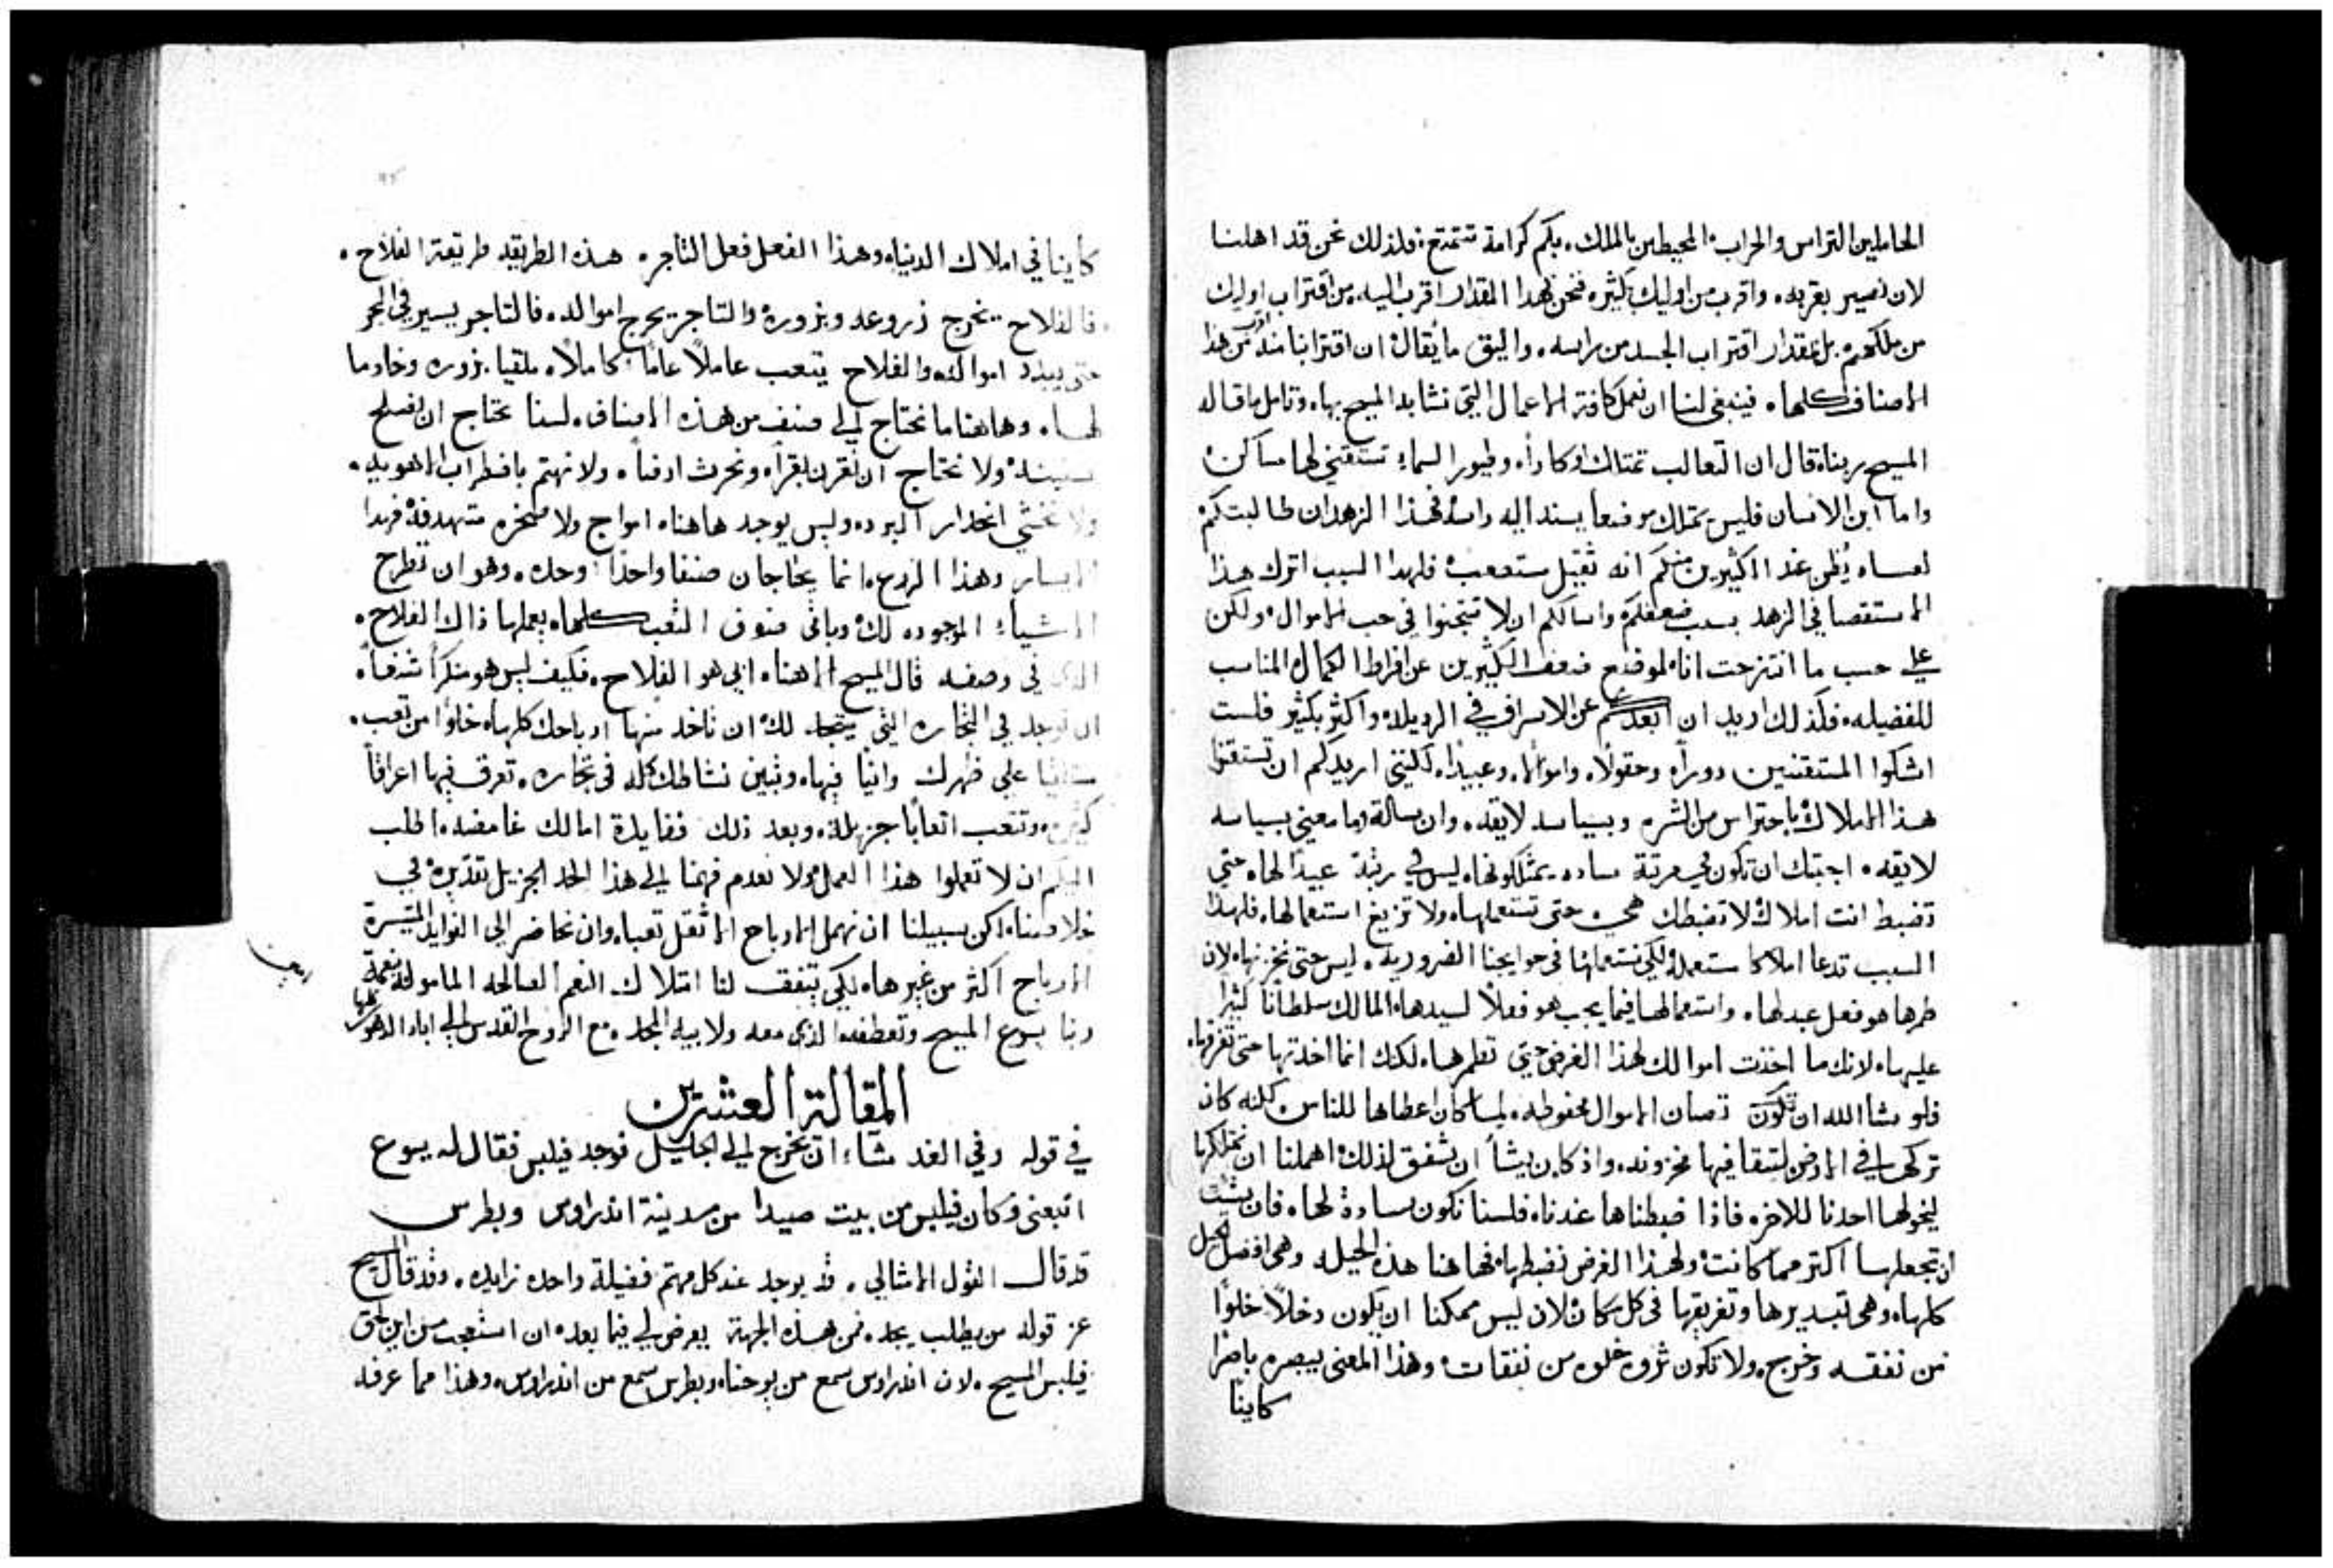 الحاملين التراس والحراب المحيطين بالملك، بكم كرامة تتمتع، فلذلك نحن قد اهلنا
لان نصير بقربه، واقرب من اوليك بكثير، فنحن بهدا المقدار اقرب اليه، من اقتراب اوليك
من ملكهم، بل بمقدار اقتراب الجسد من راسه، واليق ما يقال ان اقترابنا منه اقرب من هذا
الاصناف كلها، فينبغي لنا ان نعمل كافة الاعمال التي نشابه المسيح بها، وتامل ما قاله
المسيح ربنا، قال ان الثعالب تمتلك اوكاراً، وطيور السماء تستقني لها مساكن
واما ابن الانسان فليس يمتلك موضعاً يسند اليه راسه فهذا الزهد ان طالبتكم
لعساه يُظن عند الكثيرين منكم انه ثقيل مستصعب فلهدا السبب اترك هذا
الاستقصا في الزهد بسبب ضعفكم واسالكم ان لا تتجنوا في حب الاموال، ولكن
على حسب ما انتزحت انا لموضع ضعف الكثيرين عن افراط الكمال المناسب
للفضيله، فكذلك اريد ان ابعدكم عن الاسراف في الرديله، واكثر بكثير فلست
اشكوا المستقنين دوراً، وحقولاً، واموالاً، وعبيداً، لكنني اريدكم ان تستقنوا
هذا الاملاك باحتراس من الشره وبسياسه لايقه، وان سالت وما معني بسياسه
لايقه، اجبتك ان تكون في مرتبة ساده، يمتلكونها، ليس في رتبة عبيداً لها، حتي
تضبط انت املاك لا تضبطك هي حتى تستعملها، ولا تزيغ استعمالها، فلهذا
السبب تدعا املاكا مستعمله لكي نستعملها في حوايجنا الضروريه، ليس حتى نخزنها، لان
طمرها هو فعل عبد لها، واستعمالها فيما يجب هو فعلاً لسيدها المالك سلطاناً كثيراً
عليها، لانك ما اخذت اموالك لهذا الغرض حتى تطمرها، لكنك انما اخدتها حتى تفرقها،
فلو شا الله ان تكون تصان الاموال محفوظه، لما كان اعطاها للناس لكنه كان
تركها في الارض لتبقا فيها مخزونه، واذ كان يشأ ان تنفق لذلك اهملنا ان نمتلكها
ليخولها احدنا للاخر، فاذا ضبطناها عندنا، فلسنا نكون سادة لها، فان شيت
ان تجعلها اكثر مما كانت، ولهذا الغرض نضبطها، فهاهنا هذه الحيله وهي افضل الحيل
كلها، وهي تبديرها وتفريقها في كل مكان، لان ليس ممكنا ان يكون دخلاً خلواً
من نفقه وخرج، ولا تكون ثروه خلوه من نفقات، وهذا المعني يبصره باصراً
كاينا
كاينا في املاك الدنيا، وهذا الفعل فعل التاجر، هذه الطريقه طريقة الفلاح،
فالفلاح يخرج زروعه وبزوره، والتاجر يخرج امواله، فالتاجر يسير في البحر
حتى يبدد امواله، والفلاح يتعب عاملاً عاماً كاملاً، ملقيا بزوره وخادما
لها، وهاهنا ما نحتاج الى صنف من هذه الاصناف، لسنا نحتاج ان نصلح
سفينة، ولا نحتاج ان نقرن بقراً، ونحرث ارضاً، ولا نهتم باضطراب الاهويه،
ولا نخشى انحدار البرد، وليس يوجد هاهنا، امواج ولا صخره متهدفه فهدا
المسار وهذا الزرع، انما يحتاجان صنفا واحداً وحده، وهو ان تطرح
الاشياء الموجوده لك، وباقي صنوف التعب كلها، يعملها ذاك الفلاح،
الذي في وصفه قال المسيح الاهنا، ابي هو الفلاح، فكيف ليس هو منكراً شنعاً،
ان توجد في التجاره التي يتجه لك، ان تاخد منها ارباحك كلها، خلواً من تعب،
مستلقياً على ظهرك وانياً فيها، وتبين نشاطك كله في تجاره، تعرق فيها اعراقاً
كثيره، وتتعب اتعاباً جزيله، وبعد ذلك ففايدة امالك غامضه، اطلب
اليكم ان لا تعملوا هذا العمل، ولا نعدم فهمنا الى هذا الحد الجزيل تقديره في
خلاصنا، لكن سبيلنا ان نهمل الارباح الاثقل تعبا، وان نحاضر الى الفوايد المتيسرة
الارباح اكثر من غيرها، لكي يتفق لنا امتلاك النعم الصالحه الماموله بنعمة
ربنا يسوع المسيح وتعطفه، الذي معه ولابيه المجد، مع الروح القدس الى اباد الدهور كلها
امين
المقالة العشرين
في قوله وفي الغد شاء ان يخرج الى الجليل فوجد فيلبس فقال له يسوع
اتبعني وكان فيلبس من بيت صيدا من مدينة اندراوس وبطرس
قد قال القول الامثالي، قد يوجد عند كل مهتم فضيلة واحده زايده، وقد قال المسيح
عز قوله من يطلب يجد، فمن هذه الجهة يعرض لي فيما بعد، ان استعجب من اين لحق
فيلبس المسيح، لان اندراوس سمع من يوحنا، وبطرس سمع من اندراوس، وهذا مما عرفه